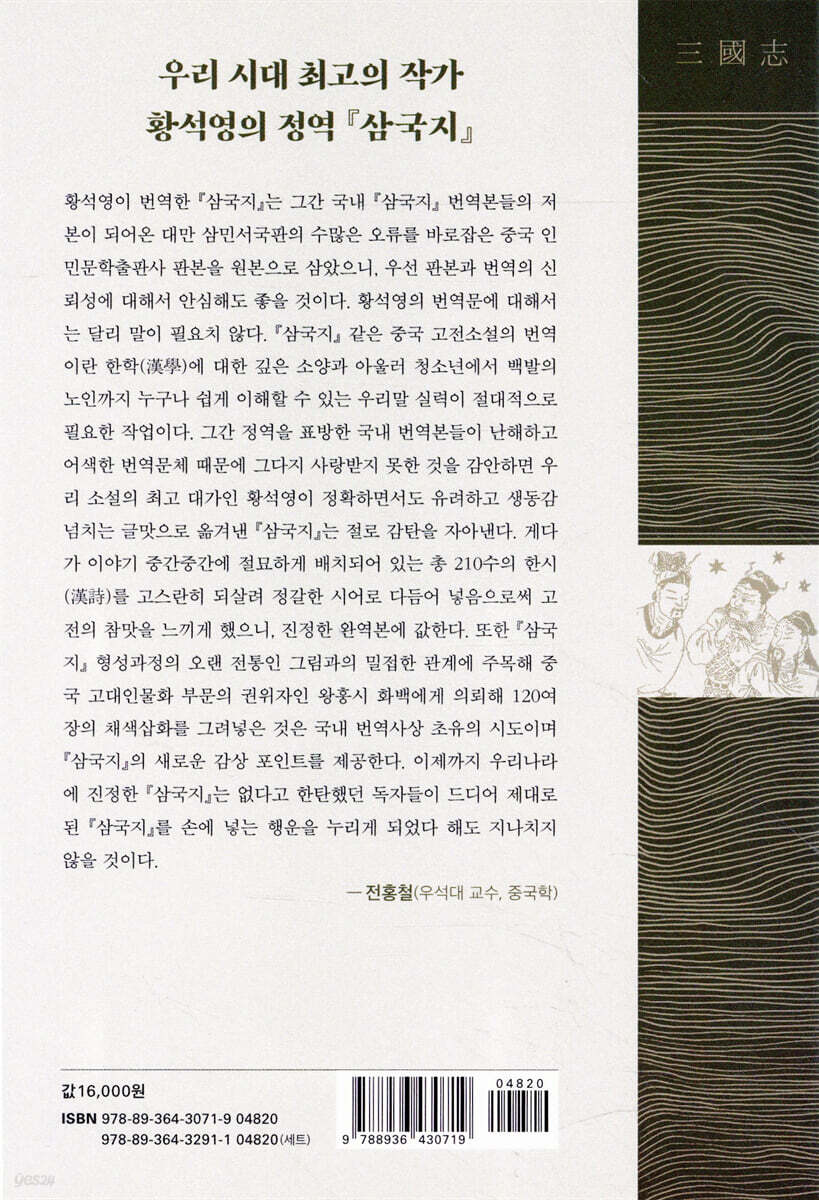 三國志
우리 시대 최고의 작가
황석영의 정역 『삼국지』
황석영이 번역한 『삼국지』는 그간 국내 『삼국지』 번역본들의 저
본이 되어온 대만 삼민서국판의 수많은 오류를 바로잡은 중국 인
민문학출판사 판본을 원본으로 삼았으니, 우선 판본과 번역의 신
뢰성에 대해서 안심해도 좋을 것이다. 황석영의 번역문에 대해서
는 달리 말이 필요치 않다. 『삼국지』 같은 중국 고전소설의 번역
이란 한학(漢學)에 대한 깊은 소양과 아울러 청소년에서 백발의
노인까지 누구나 쉽게 이해할 수 있는 우리말 실력이 절대적으로
필요한 작업이다. 그간 정역을 표방한 국내 번역본들이 난해하고
어색한 번역문체 때문에 그다지 사랑받지 못한 것을 감안하면 우
리 소설의 최고 대가인 황석영이 정확하면서도 유려하고 생동감
넘치는 글맛으로 옮겨낸 『삼국지』는 절로 감탄을 자아낸다. 게다
가 이야기 중간중간에 절묘하게 배치되어 있는 총 210수의 한시
(漢詩)를 고스란히 되살려 정갈한 시어로 다듬어 넣음으로써 고
전의 참맛을 느끼게 했으니, 진정한 완역본에 값한다. 또한 『삼국
지』 형성과정의 오랜 전통인 그림과의 밀접한 관계에 주목해 중
국 고대인물화 부문의 권위자인 왕훙시 화백에게 의뢰해 120여
장의 채색삽화를 그려넣은 것은 국내 번역사상 초유의 시도이며
『삼국지』의 새로운 감상 포인트를 제공한다. 이제까지 우리나라
에 진정한 『삼국지』는 없다고 한탄했던 독자들이 드디어 제대로
된 『삼국지』를 손에 넣는 행운을 누리게 되었다 해도 지나치지
않을 것이다.
— 전홍철(우석대 교수, 중국학)
값16,000원
ISBN 978-89-364-3071-9 04820
978-89-364-3291-1 04820(세트)
04820
9 788936 430719
yes24